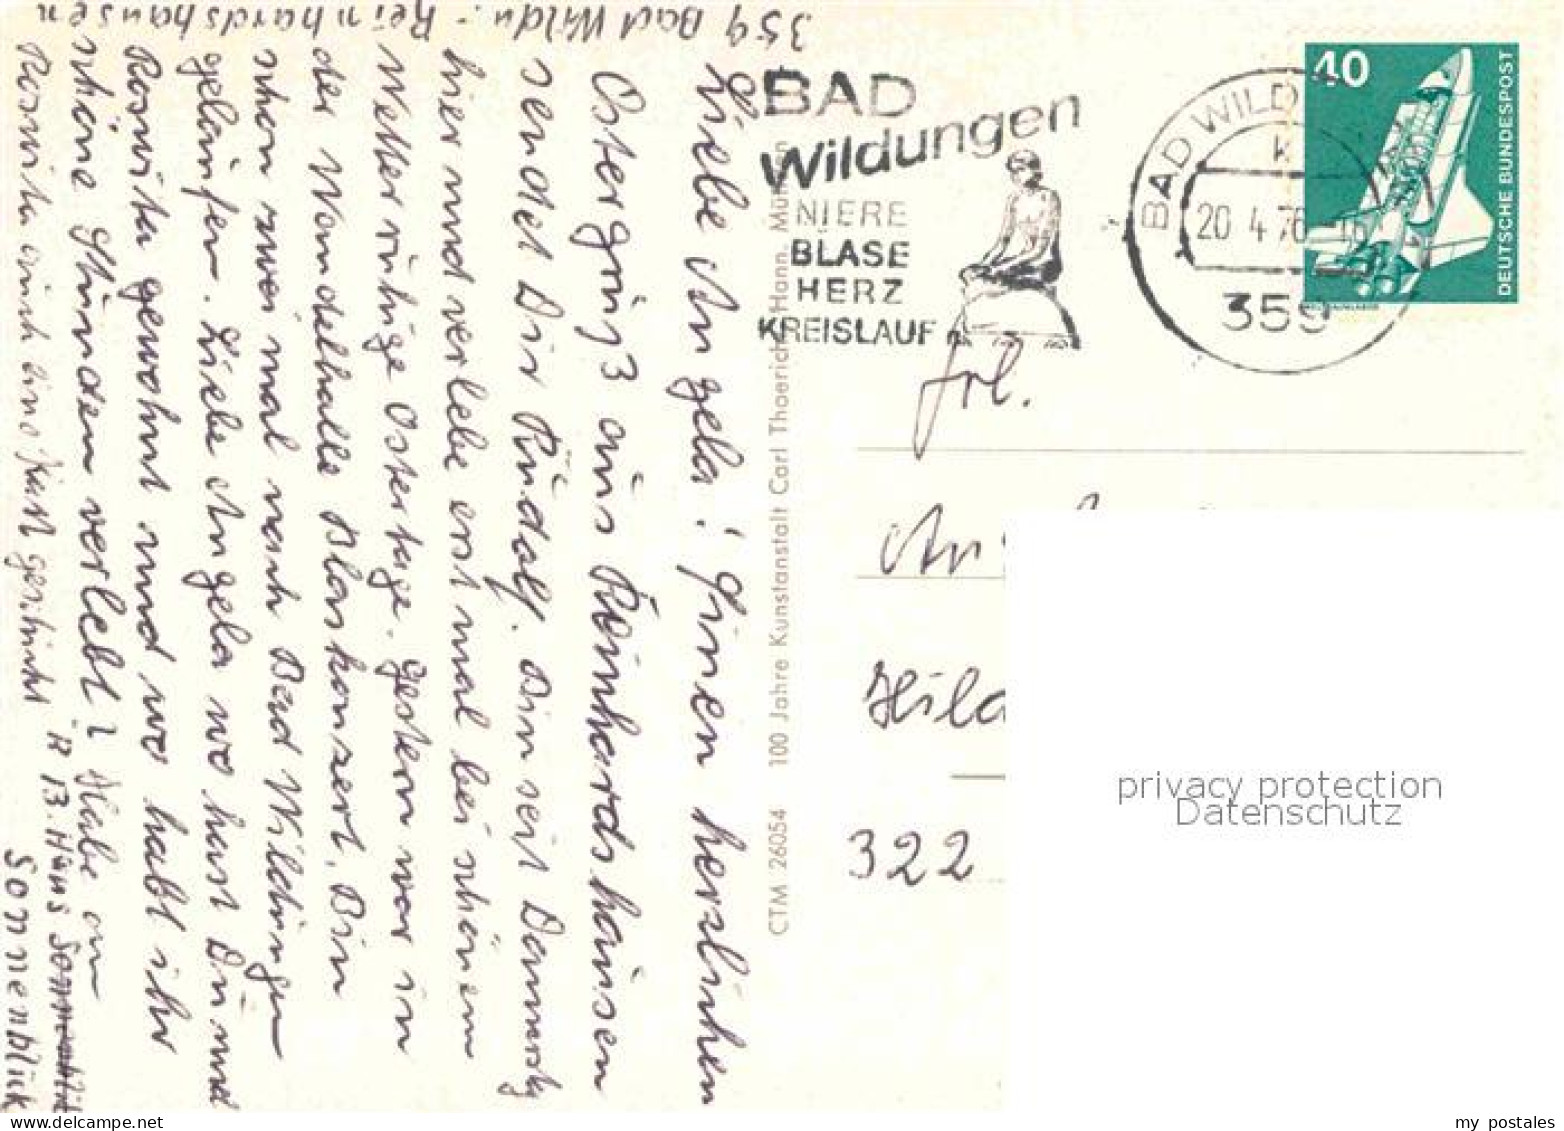 Liebe Angela! Einen herzlichen
Ostergruß aus Reinhardshausen
sendet Dir Rudolf. Bin seit Donnerstag
hier und verlebe erst mal bei schönem
Wetter ruhige Ostertage. Gestern war in
der Wandelhalle Blaskonzert. Bin
schon zwei mal nach Bad Wildungen
gelaufen. Liebe Angela wo hast Du und
Roswita gewohnt und wo habt ihr
schöne Stunden verlebt? Habe an
Roswita auch eine Karte geschickt
R 13. Haus Sonnenblick
Sonnenblick
359 Bad Wildu.- Reinhardshausen
CTM 26054 100 Jahre Kunstanstalt Carl Thoericht, Hann. Münden
BAD
Wildungen
NIERE
BLASE
HERZ
KREISLAUF
BAD WILD
k
20.4.76-16
359
40
DEUTSCHE BUNDESPOST
Frl.
An
Hild
322
privacy protection
Datenschutz
my postales